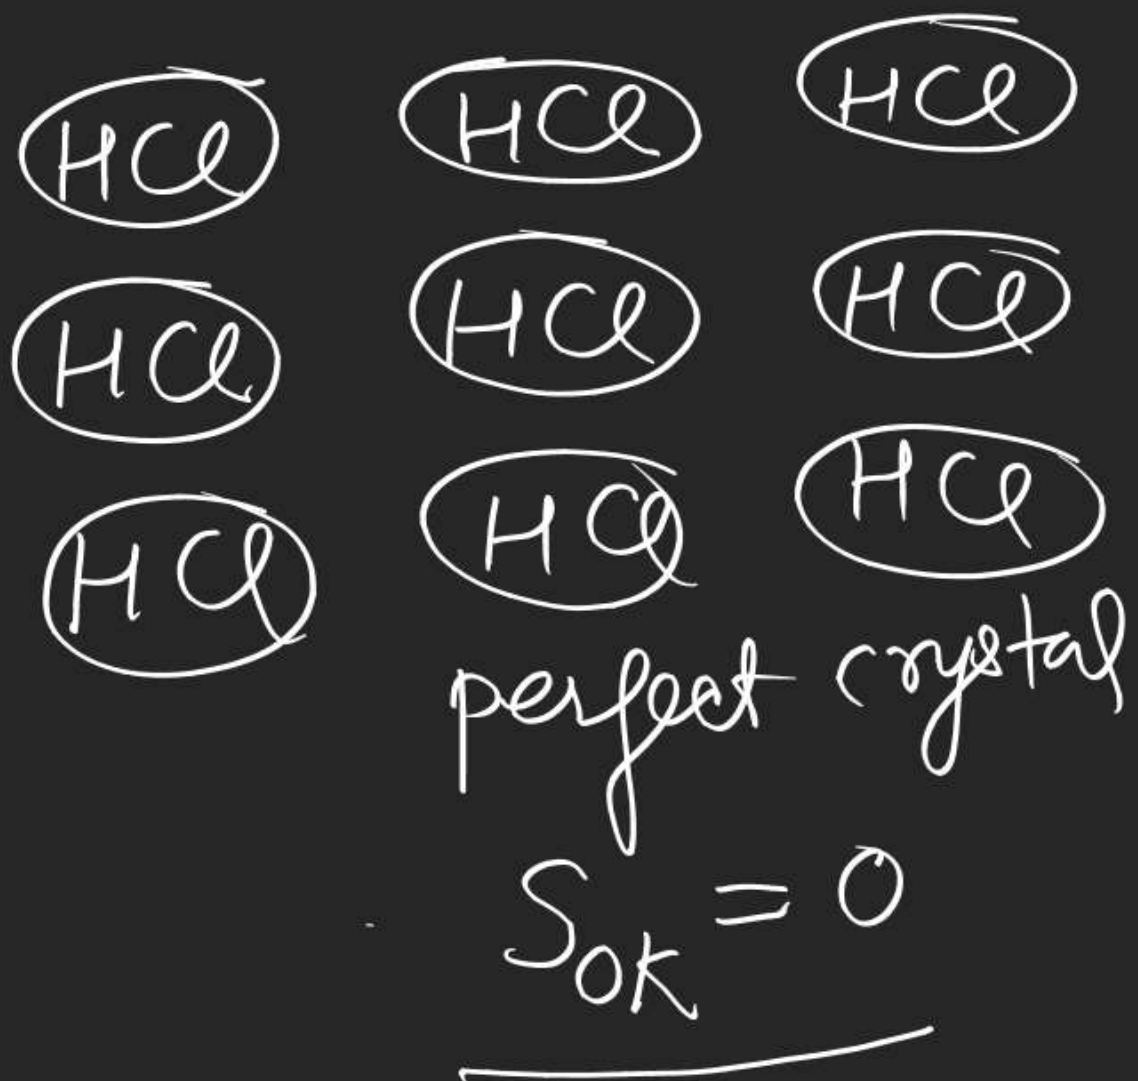 HCl HCl HCl
HCl HCl HCl
HCl HCl HCl
perfect crystal
S0K = 0